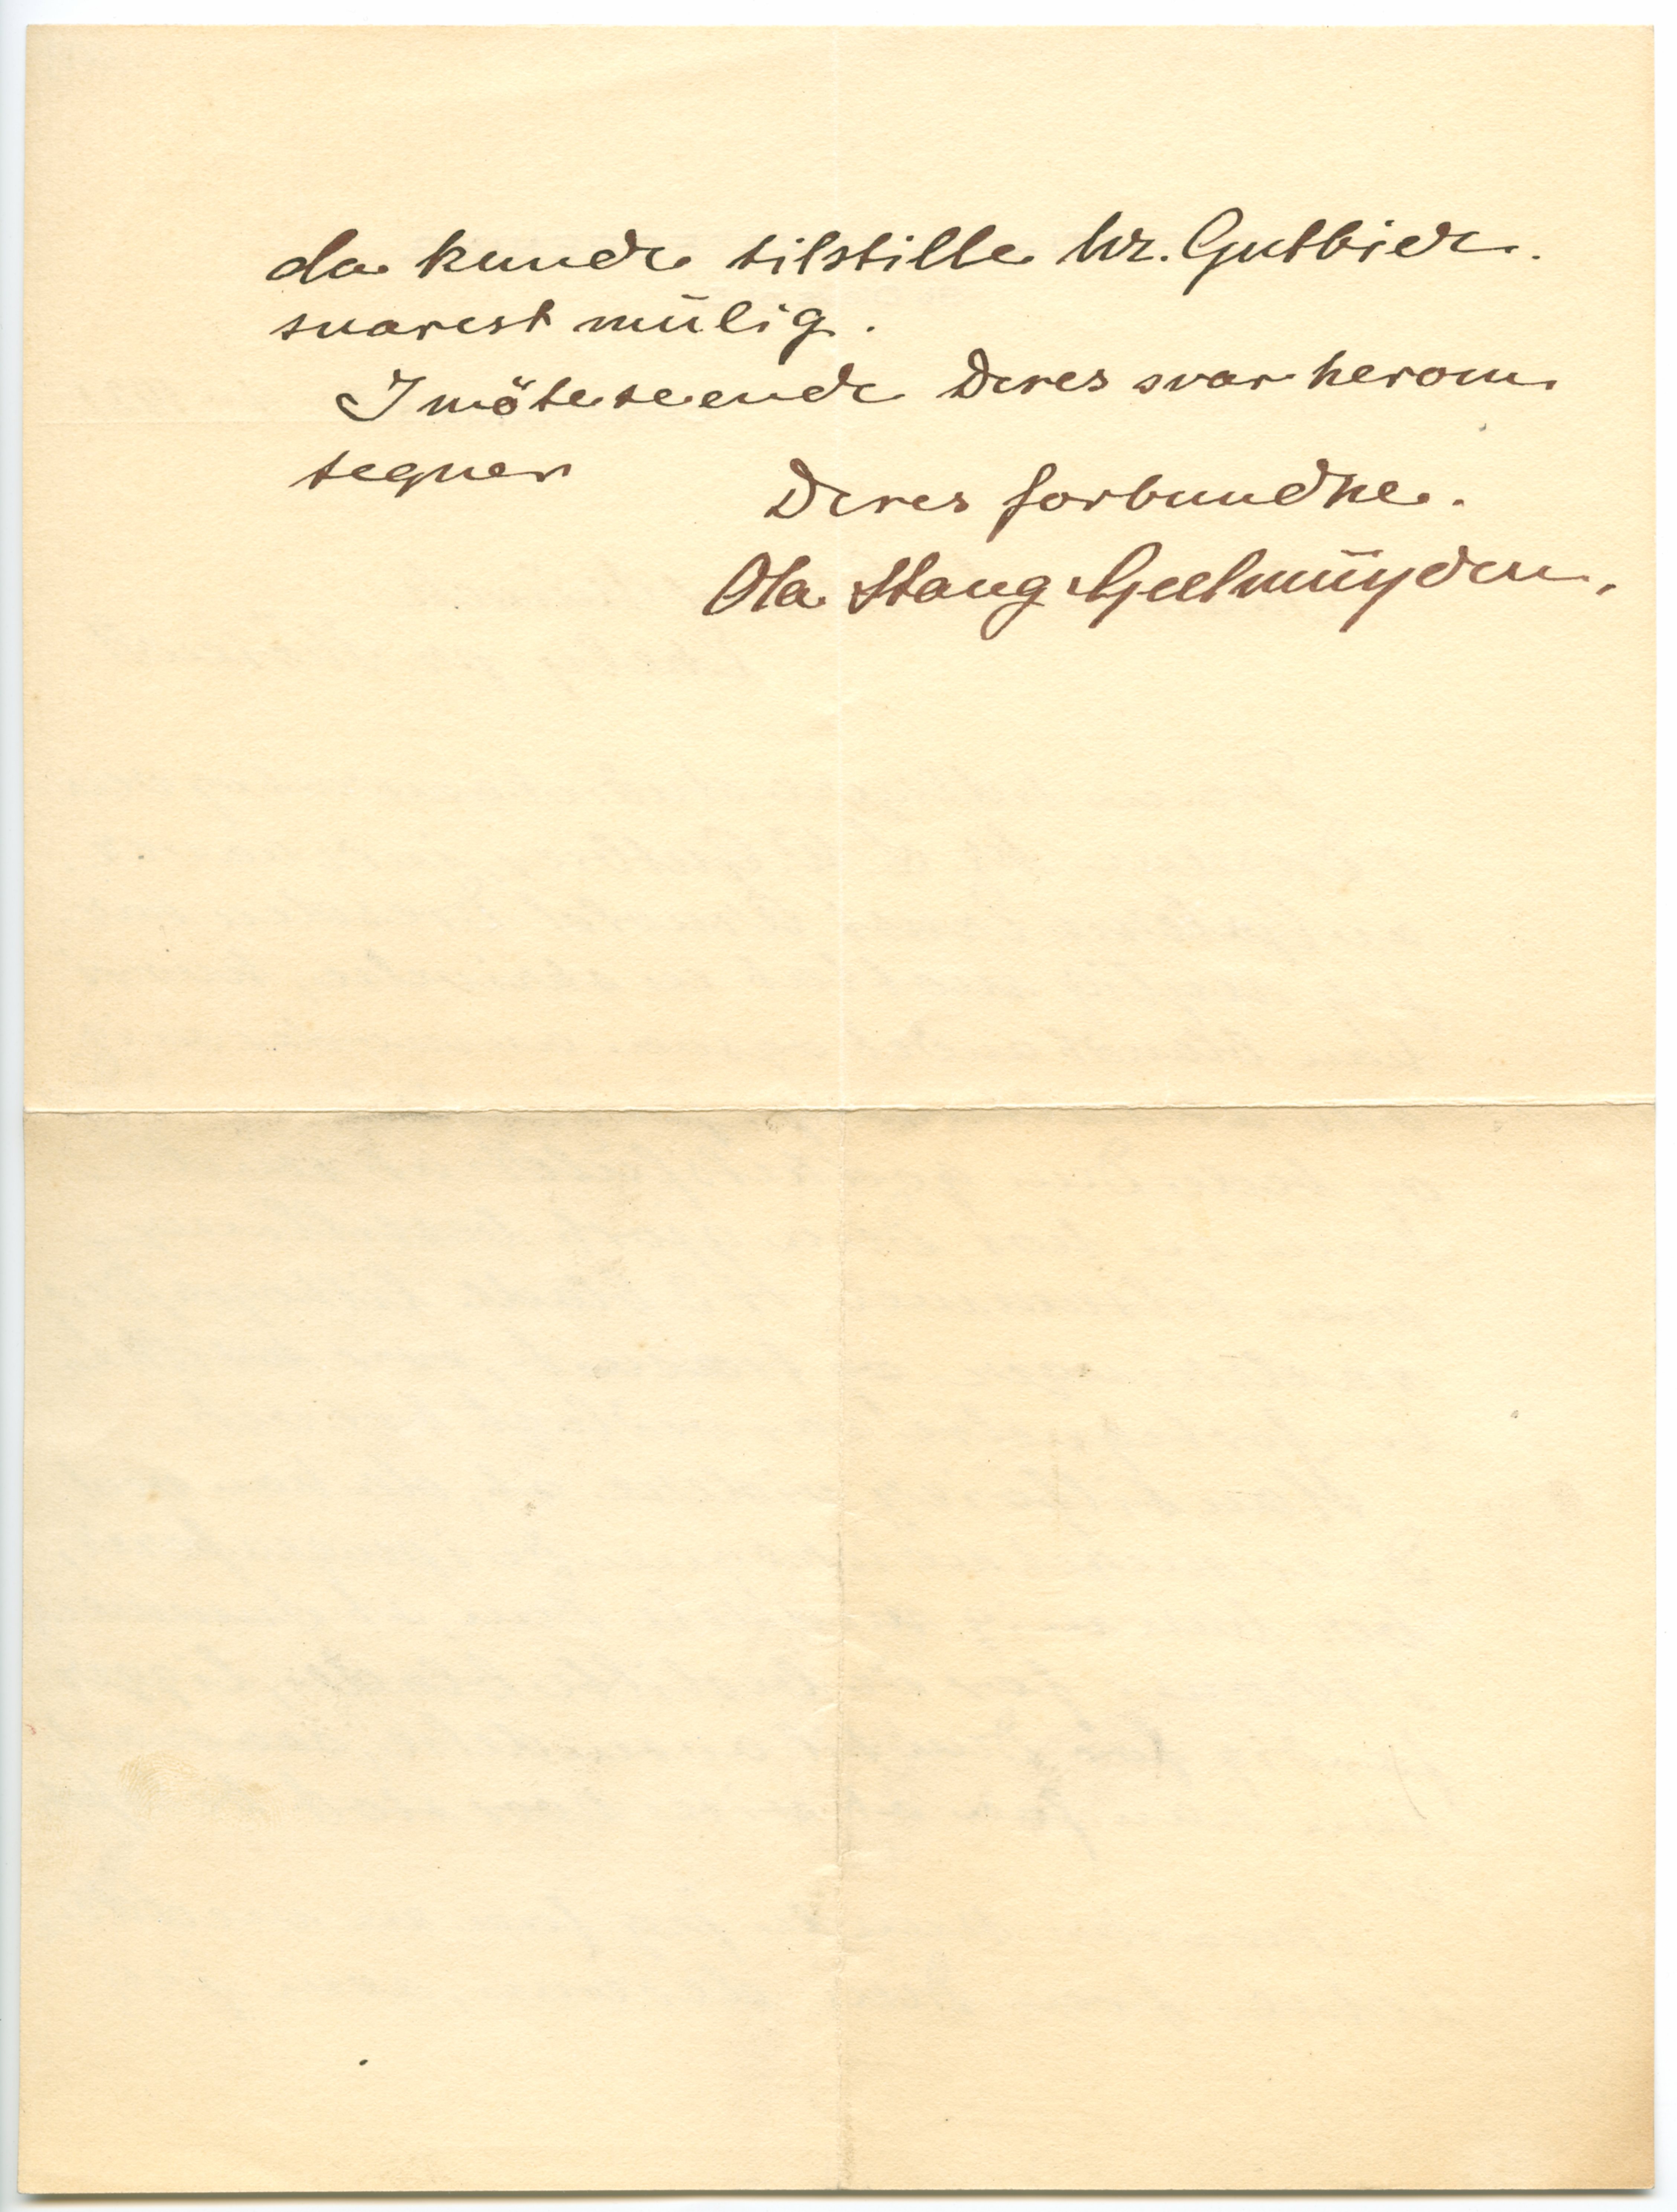 da kunde tilstille hr. Gutbier.
snarest mülig.
Imöteseende Deres svar herom
tegner
Deres forbundne.
Ola Stang Geelmüyden.